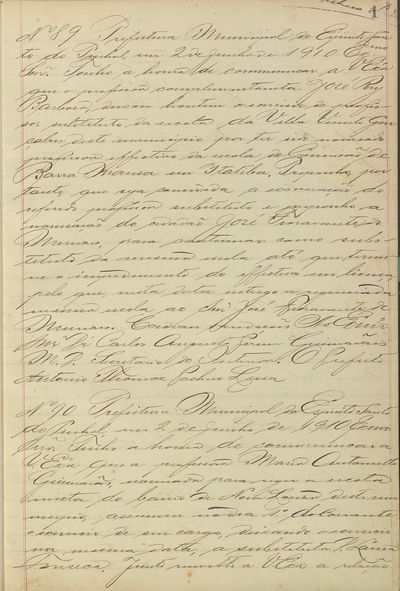 1
Nº 89 Prefeitura Municipal do Espirito San
to do Pinhal, em 2 de junho de 1910 Exmo
Snr. Tenho a honra de communicar a VExa
que o professor complementarista José Ruy
Barbosa, deixou hontem o exercicio de profes
sor substituto da escola da Villa Vicente Gon
calves deste municipio por ter sido nomeado
professor effectivo da escola da
Barra Mansa em Itatiba. Proponho, por
tanto que seja concedida a exoneração do
referido professor substituto e proponho a
nomeação do cidadão José
para continuar como subs
tituto da mesma escola até que termi
ne o impedimento do effectivo em licença
pelo que, nesta data entrego a regencia da
mesma escola ao Snr José
Exmo
Snr Dr Carlos Augusto Pereira Guimarães
M. D. Secretario do Interior. O Prefeito
Antonio Thomaz Pacheco Lessa
Nº 90 Prefeitura Municipal do Espirito Santo
do Pinhal em 2 de Junho de 1910 Exmo
Snr. Tenho a honra de communicar a
VExa que a professora Maria Antonietta
Guimarães nomeada para reger a escola
mixta do bairro de Nova Louzã deste mu
nicipio, assumiu no dia 1º do corrente
o exercicio de seu cargo, deixando o exercicio
na mesma data, a substituta D. Laura
Fonseca. Junto remetto a VExa a relação